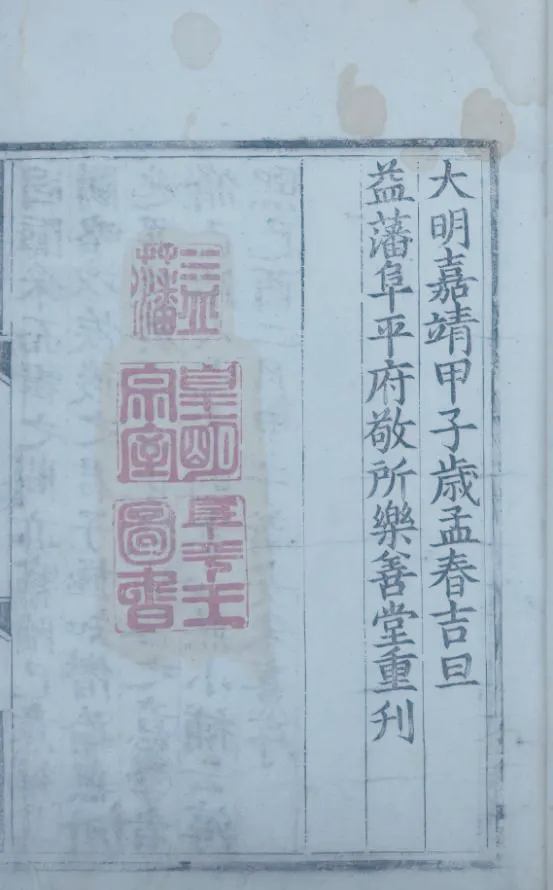 大明嘉靖甲子歳孟春吉旦
益藩阜平府敬所樂善堂重刋
益藩
皇明宗室
阜平王圖書